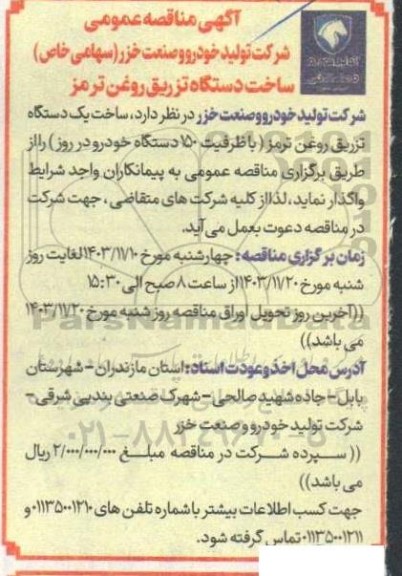 آگهی مناقصه عمومی
شرکت تولید خودرو و صنعت خزر (سهامی خاص)
ساخت دستگاه تزریق روغن ترمز
شرکت تولید خودرو و صنعت خزر در نظر دارد، ساخت یک دستگاه
تزریق روغن ترمز (با ظرفیت ۱۵۰ دستگاه خودرو در روز) را از
طریق برگزاری مناقصه عمومی به پیمانکاران واجد شرایط
واگذار نماید، لذا از کلیه شرکت های متقاضی، جهت شرکت
در مناقصه دعوت بعمل می آید.
زمان برگزاری مناقصه: چهارشنبه مورخ ۱۴۰۳/۱۱/۱۰ لغایت روز
شنبه مورخ ۱۴۰۳/۱۱/۲۰ از ساعت ۸ صبح الی ۱۵:۳۰
((آخرین روز تحویل اوراق مناقصه روز شنبه مورخ ۱۴۰۳/۱۱/۲۰
می باشد))
ParsNamadData
آدرس محل اخذ و عودت اسناد: استان مازندران - شهرستان
بابل - جاده شهید صالحی - شهرک صنعتی بندپی شرقی -
شرکت تولید خودرو و صنعت خزر
۰۲۱-۸۸۳۴۹۶۷۰-۵
(( سپرده شرکت در مناقصه مبلغ ۲/۰۰۰/۰۰۰/۰۰۰ ریال
می باشد))
جهت کسب اطلاعات بیشتر با شماره تلفن های ۰۱۱۳۵۰۰۱۲۱۰ و
۰۱۱۳۵۰۰۱۲۱۱ تماس گرفته شود.